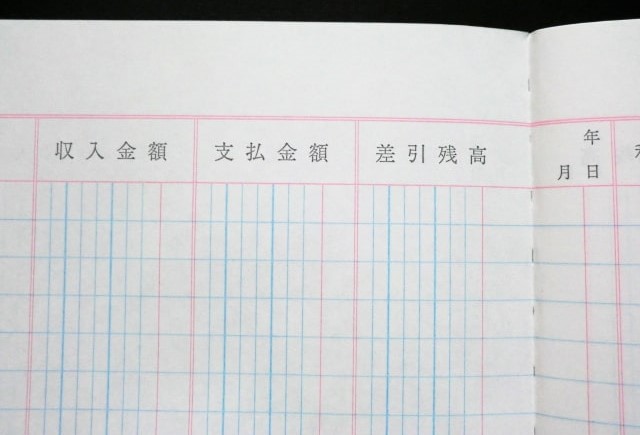 収入金額
支払金額
差引残高
年
月日